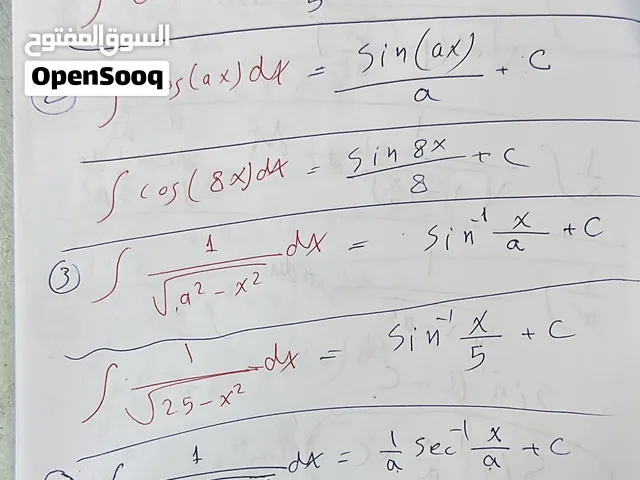 السوق المفتوح
OpenSooq
(ax) dx = sin(ax)/a + C
∫ cos(8x) dx = sin 8x/8 + C
③ ∫ 1/√(a² - x²) dx = sin⁻¹ x/a + C
∫ 1/√(25 - x²) dx = sin⁻¹ x/5 + C
1 dx = 1/a sec⁻¹ x/a + C